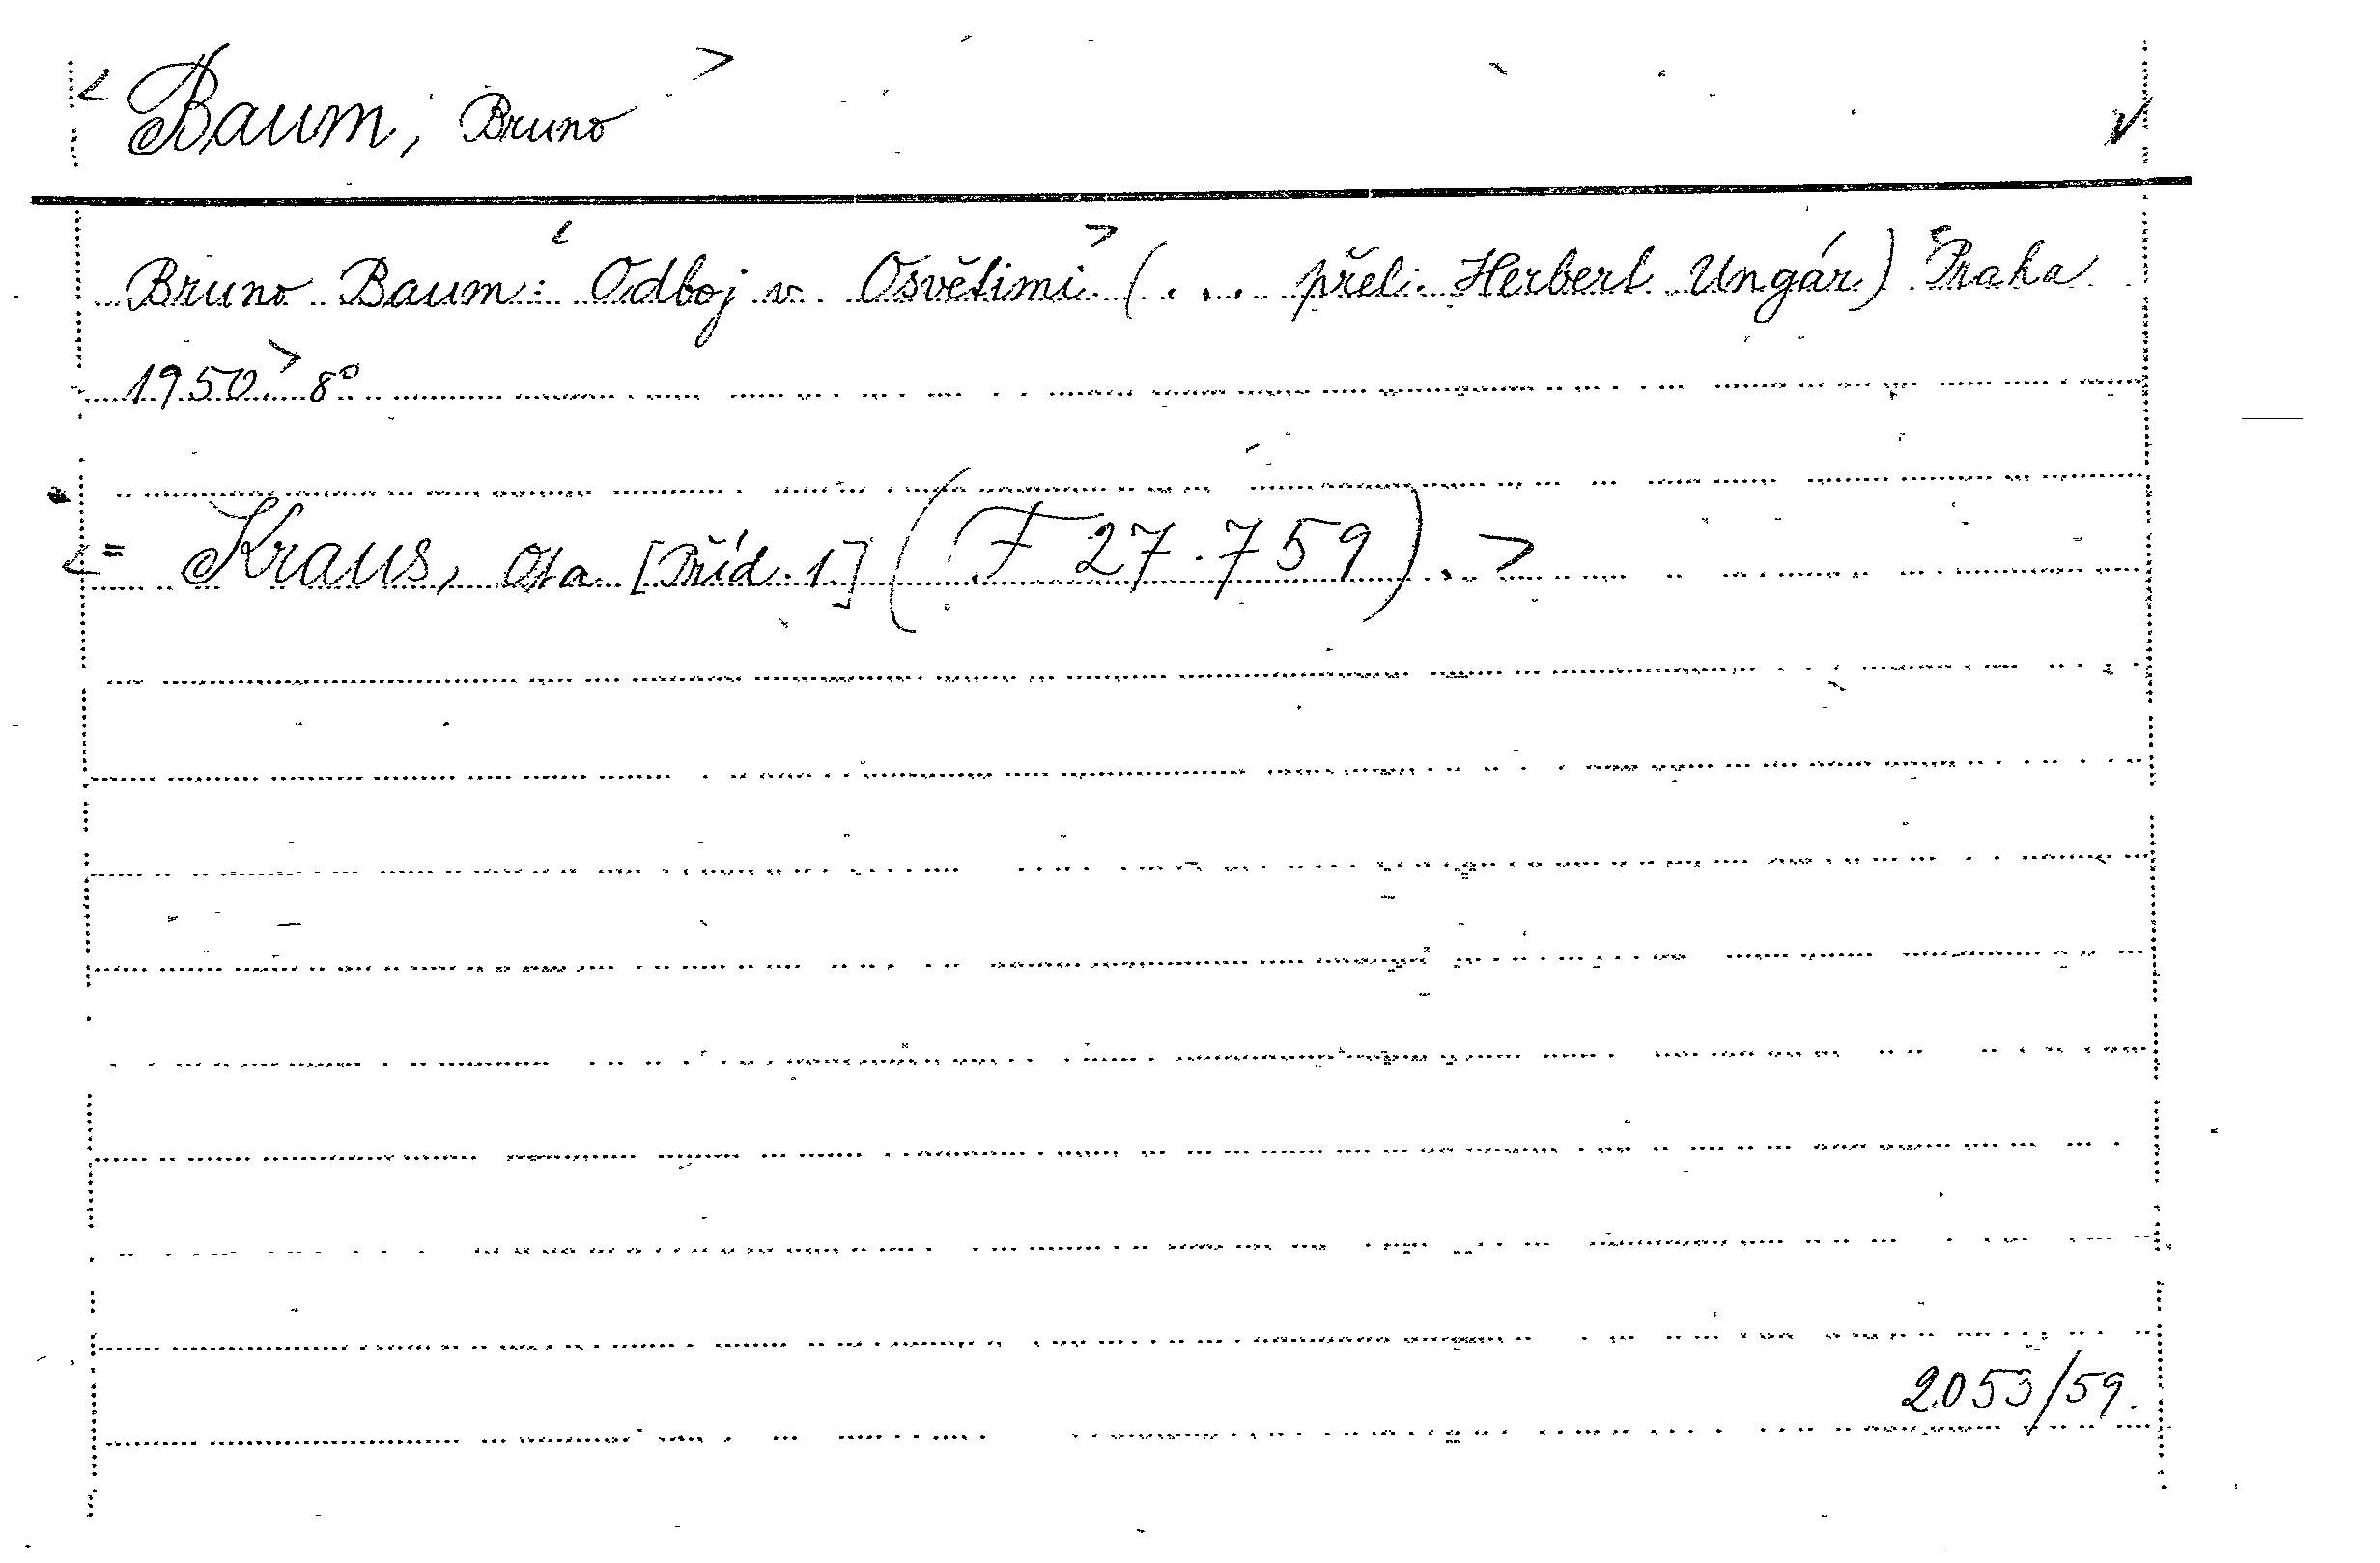 < Baum, Bruno > v
Bruno Baum: < Odboj v Osvětimi > (... přel. Herbert Ungár) < Praha
1950. > 8°
< = Kraus, Ota [Příd. 1] (F 27.759). >
2053/59.